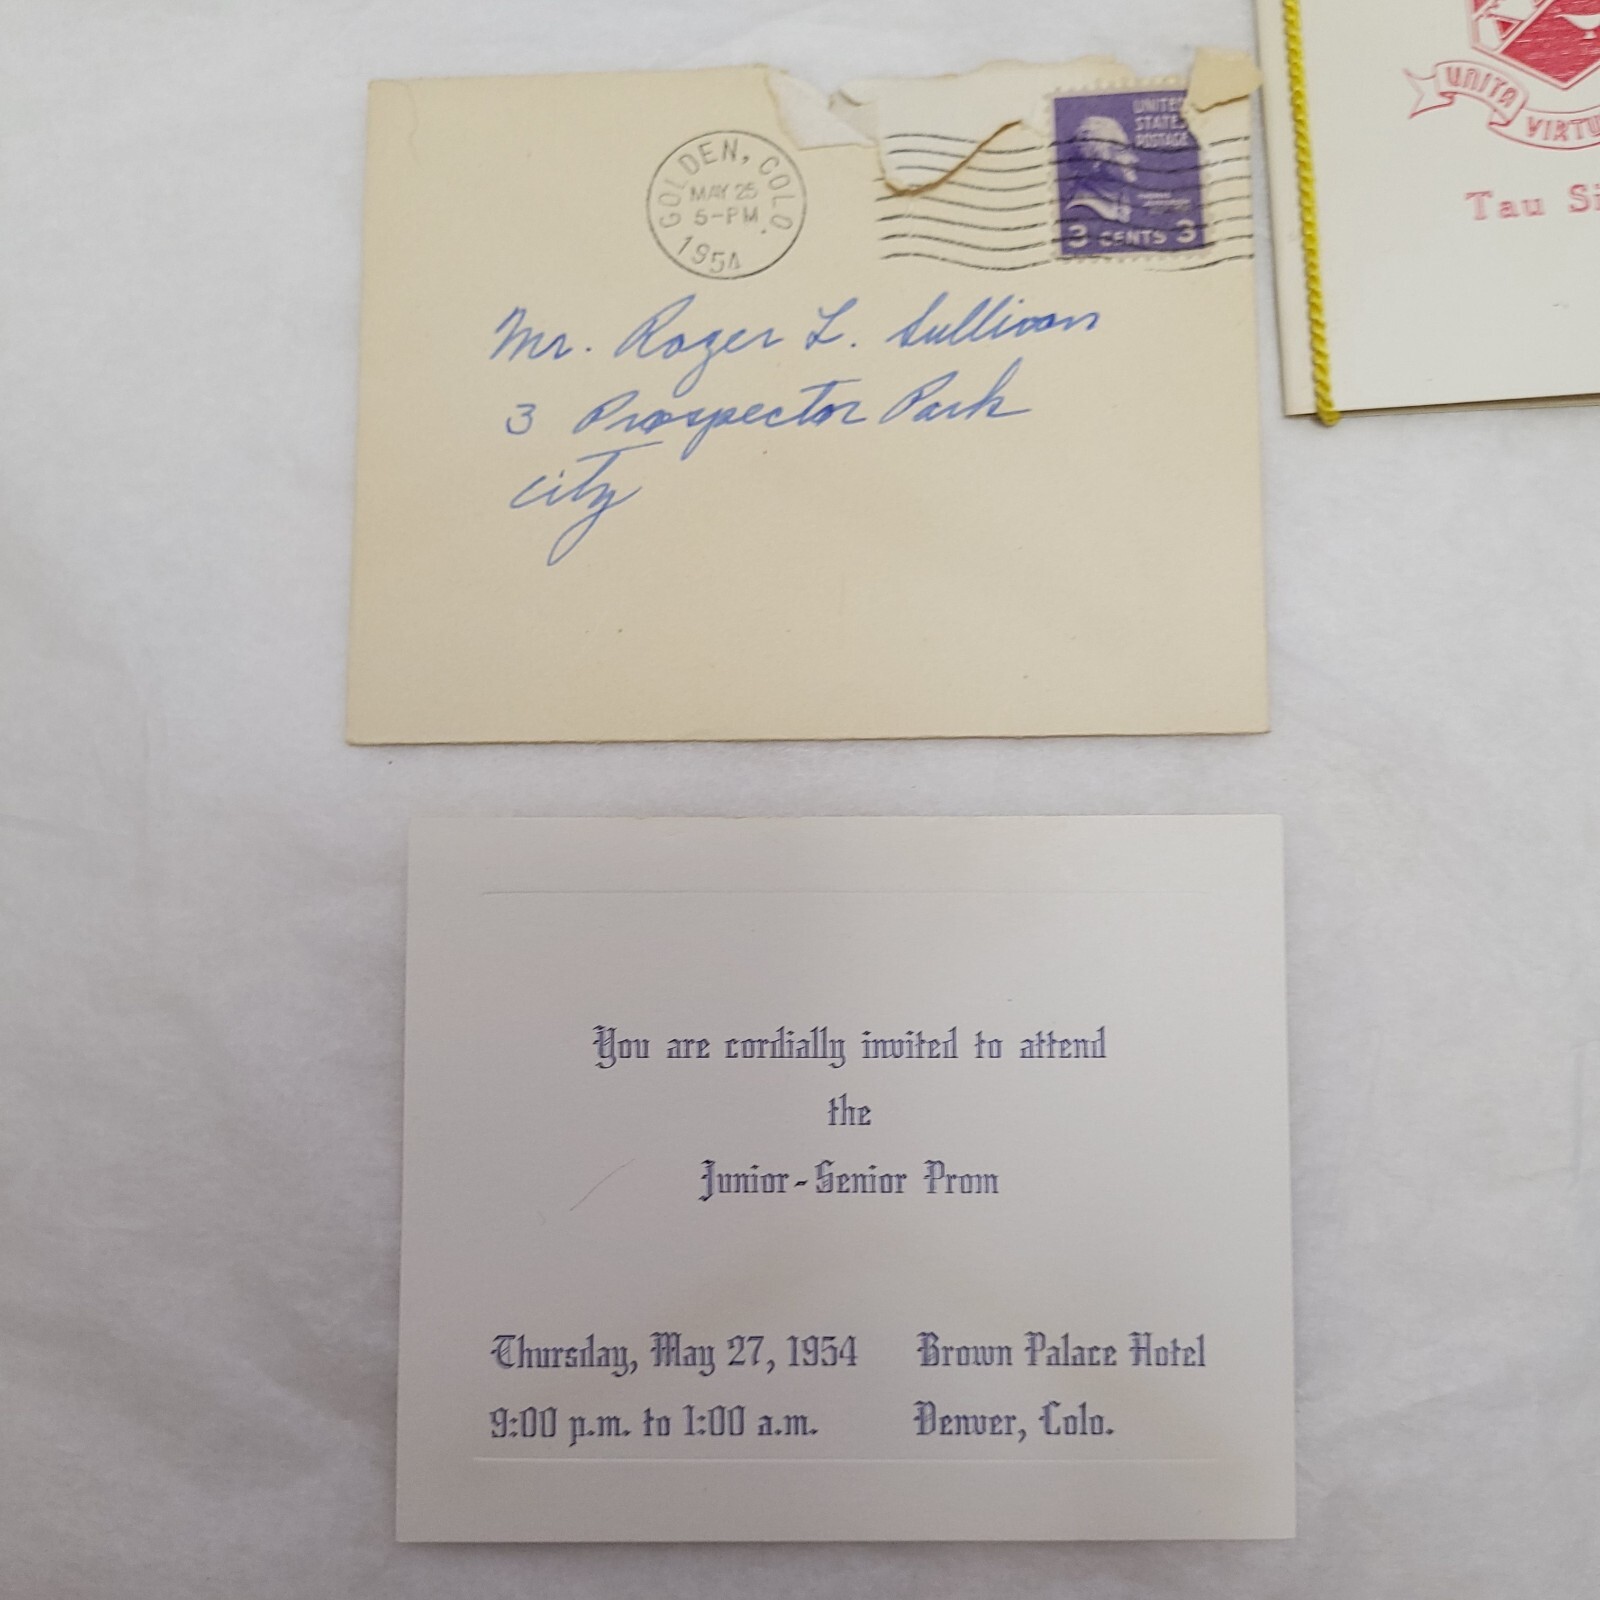 GOLDEN, COLO.
MAY 25
5-PM
1954
UNITED
STATES
POSTAGE
3 CENTS 3
Mr. Roger L. Sullivan
3 Prospector Park
City
UNITA
VIRTU
Tau Si
You are cordially invited to attend
the
Junior-Senior Prom
Thursday, May 27, 1954 Brown Palace Hotel
9:00 p.m. to 1:00 a.m. Denver, Colo.